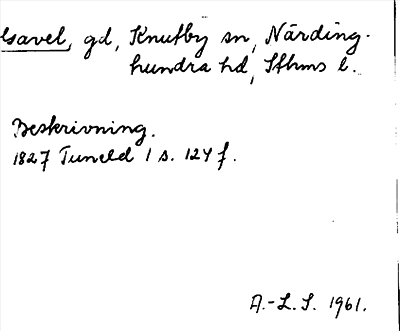 Gavel, gd, Knutby sn, Närding-
hundra hd, Sthms l.
Beskrivning.
1827 Tuneld 1 s. 124 f.
A.-L. S. 1961.